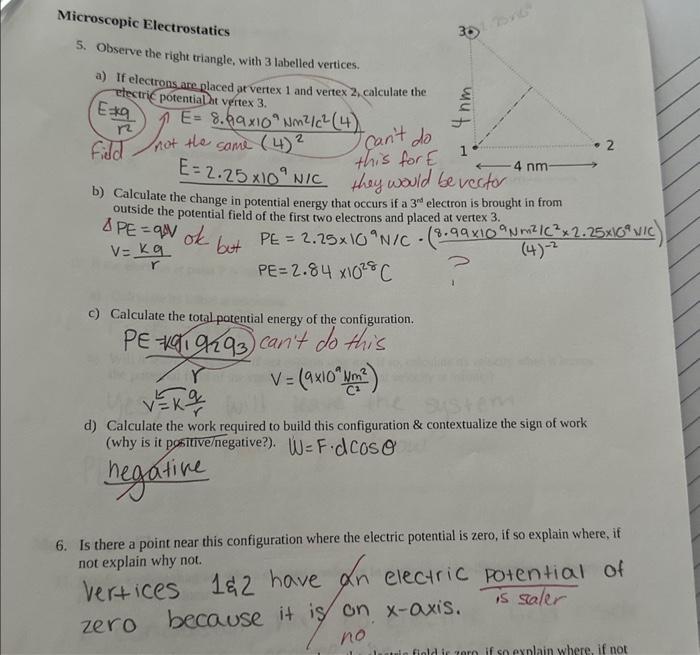 Microscopic Electrostatics
5. Observe the right triangle, with 3 labelled vertices.
a) If electrons are placed at vertex 1 and vertex 2, calculate the
electric potential at vertex 3.
3
4 nm
1
2
4 nm
E=kq
r²
field
E= 8.99x10⁹ Nm²/c²(4)
(4)²
not the same
can't do
this for E
they would be vector
E=2.25x10⁹ N/C
b) Calculate the change in potential energy that occurs if a 3rd electron is brought in from
outside the potential field of the first two electrons and placed at vertex 3.
Δ PE = qV
ok but
V= kq
r
PE = 2.25x10⁹N/C · (8.99x10⁹Nm²/C²x2.25x10⁹N/C)
(4)⁻²
PE=2.84 x10²⁸ C
?
c) Calculate the total potential energy of the configuration.
PE=kq₁q₂q₃ can't do this
r
V=k q
r
V = (9x10⁹ Nm²)
C²
d) Calculate the work required to build this configuration & contextualize the sign of work
(why is it positive/negative?). W=F·dcosθ
negative
6. Is there a point near this configuration where the electric potential is zero, if so explain where, if
not explain why not.
Vertices 1&2 have an electric potential of
is scaler
zero because it is on x-axis.
no
electric field is zero, if so explain where, if not